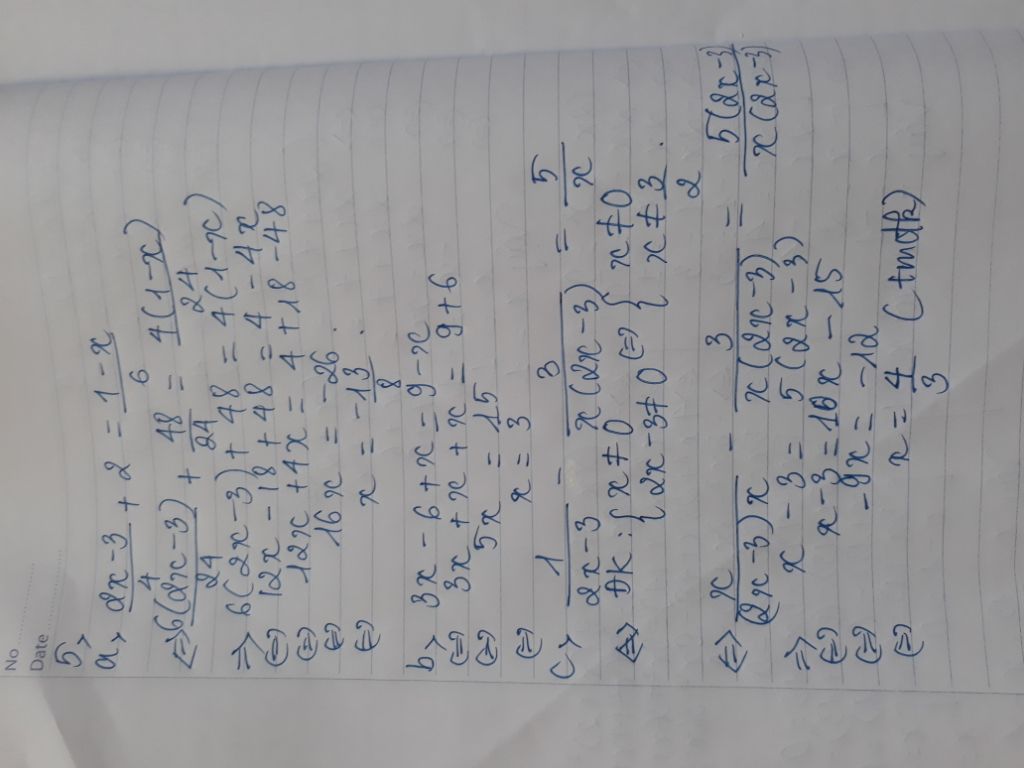 No
Date
5>
a> (2x-3)/4 + 2 = (1-x)/6
<=> 6(2x-3)/24 + 48/24 = 4(1-x)/24
=> 6(2x-3) + 48 = 4(1-x)
<=> 12x - 18 + 48 = 4 - 4x
<=> 12x + 4x = 4 + 18 - 48
<=> 16x = -26
<=> x = -13/8.
b> 3x - 6 + x = 9 - x
<=> 3x + x + x = 9 + 6
<=> 5x = 15
<=> x = 3
c> 1/(2x-3) - 3/(x(2x-3)) = 5/x
ĐK: { x ≠ 0 { 2x-3 ≠ 0 <=> { x ≠ 0 { x ≠ 3/2.
<=> x/((2x-3)x) - 3/(x(2x-3)) = 5(2x-3)/(x(2x-3))
=> x - 3 = 5(2x-3)
<=> x - 3 = 10x - 15
<=> -9x = -12
<=> x = 4/3 (tmđk)